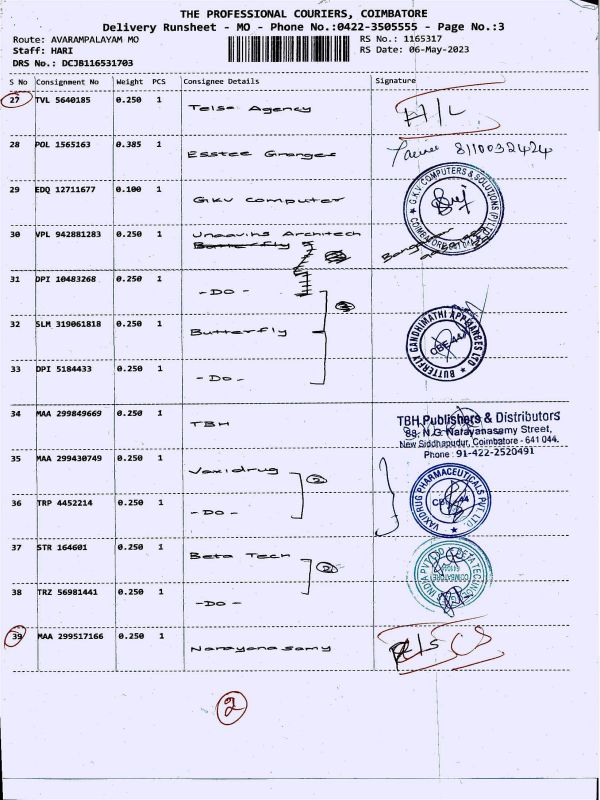 THE PROFESSIONAL COURIERS, COIMBATORE
Delivery Runsheet - MO - Phone No.:0422-3505555 - Page No.:3
Route: AVARAMPALAYAM MO RS No.: 1165317
Staff: HARI RS Date: 06-May-2023
DRS No.: DCJB116531703
S No Consignment No Weight PCS Consignee Details Signature
27 TVL 5640185 0.250 1 Telsa Agency H/L
28 POL 1565163 0.385 1 Esstee Granges 8110032424
29 EDQ 12711677 0.100 1 GKV Computer
G.K.V COMPUTERS & SOLUTIONS (P) LTD
COIMBATORE
30 VPL 942881283 0.250 1 Architech
Butterfly
31 DPI 10483268 0.250 1 -DO-
32 SLM 319061818 0.250 1 Butterfly
BUTTERFLY GANDHIMATHI APPLIANCES LTD
CBE-44
33 DPI 5184433 0.250 1 -DO-
34 MAA 299849669 0.250 1 TBH
TBH Publishers & Distributors
89, N.G. Narayanasamy Street,
New Siddhapudur, Coimbatore - 641 044.
Phone : 91-422-2520491
35 MAA 299430749 0.250 1 Vaxidrug 2
VAXIDRUG PHARMACEUTICALS PVT. LTD
CBE-44
36 TRP 4452214 0.250 1 -DO-
37 STR 164601 0.250 1 Beta Tech 2
COIMBATORE
38 TRZ 56981441 0.250 1 -DO-
39 MAA 299517166 0.250 1 Narayanasamy
2